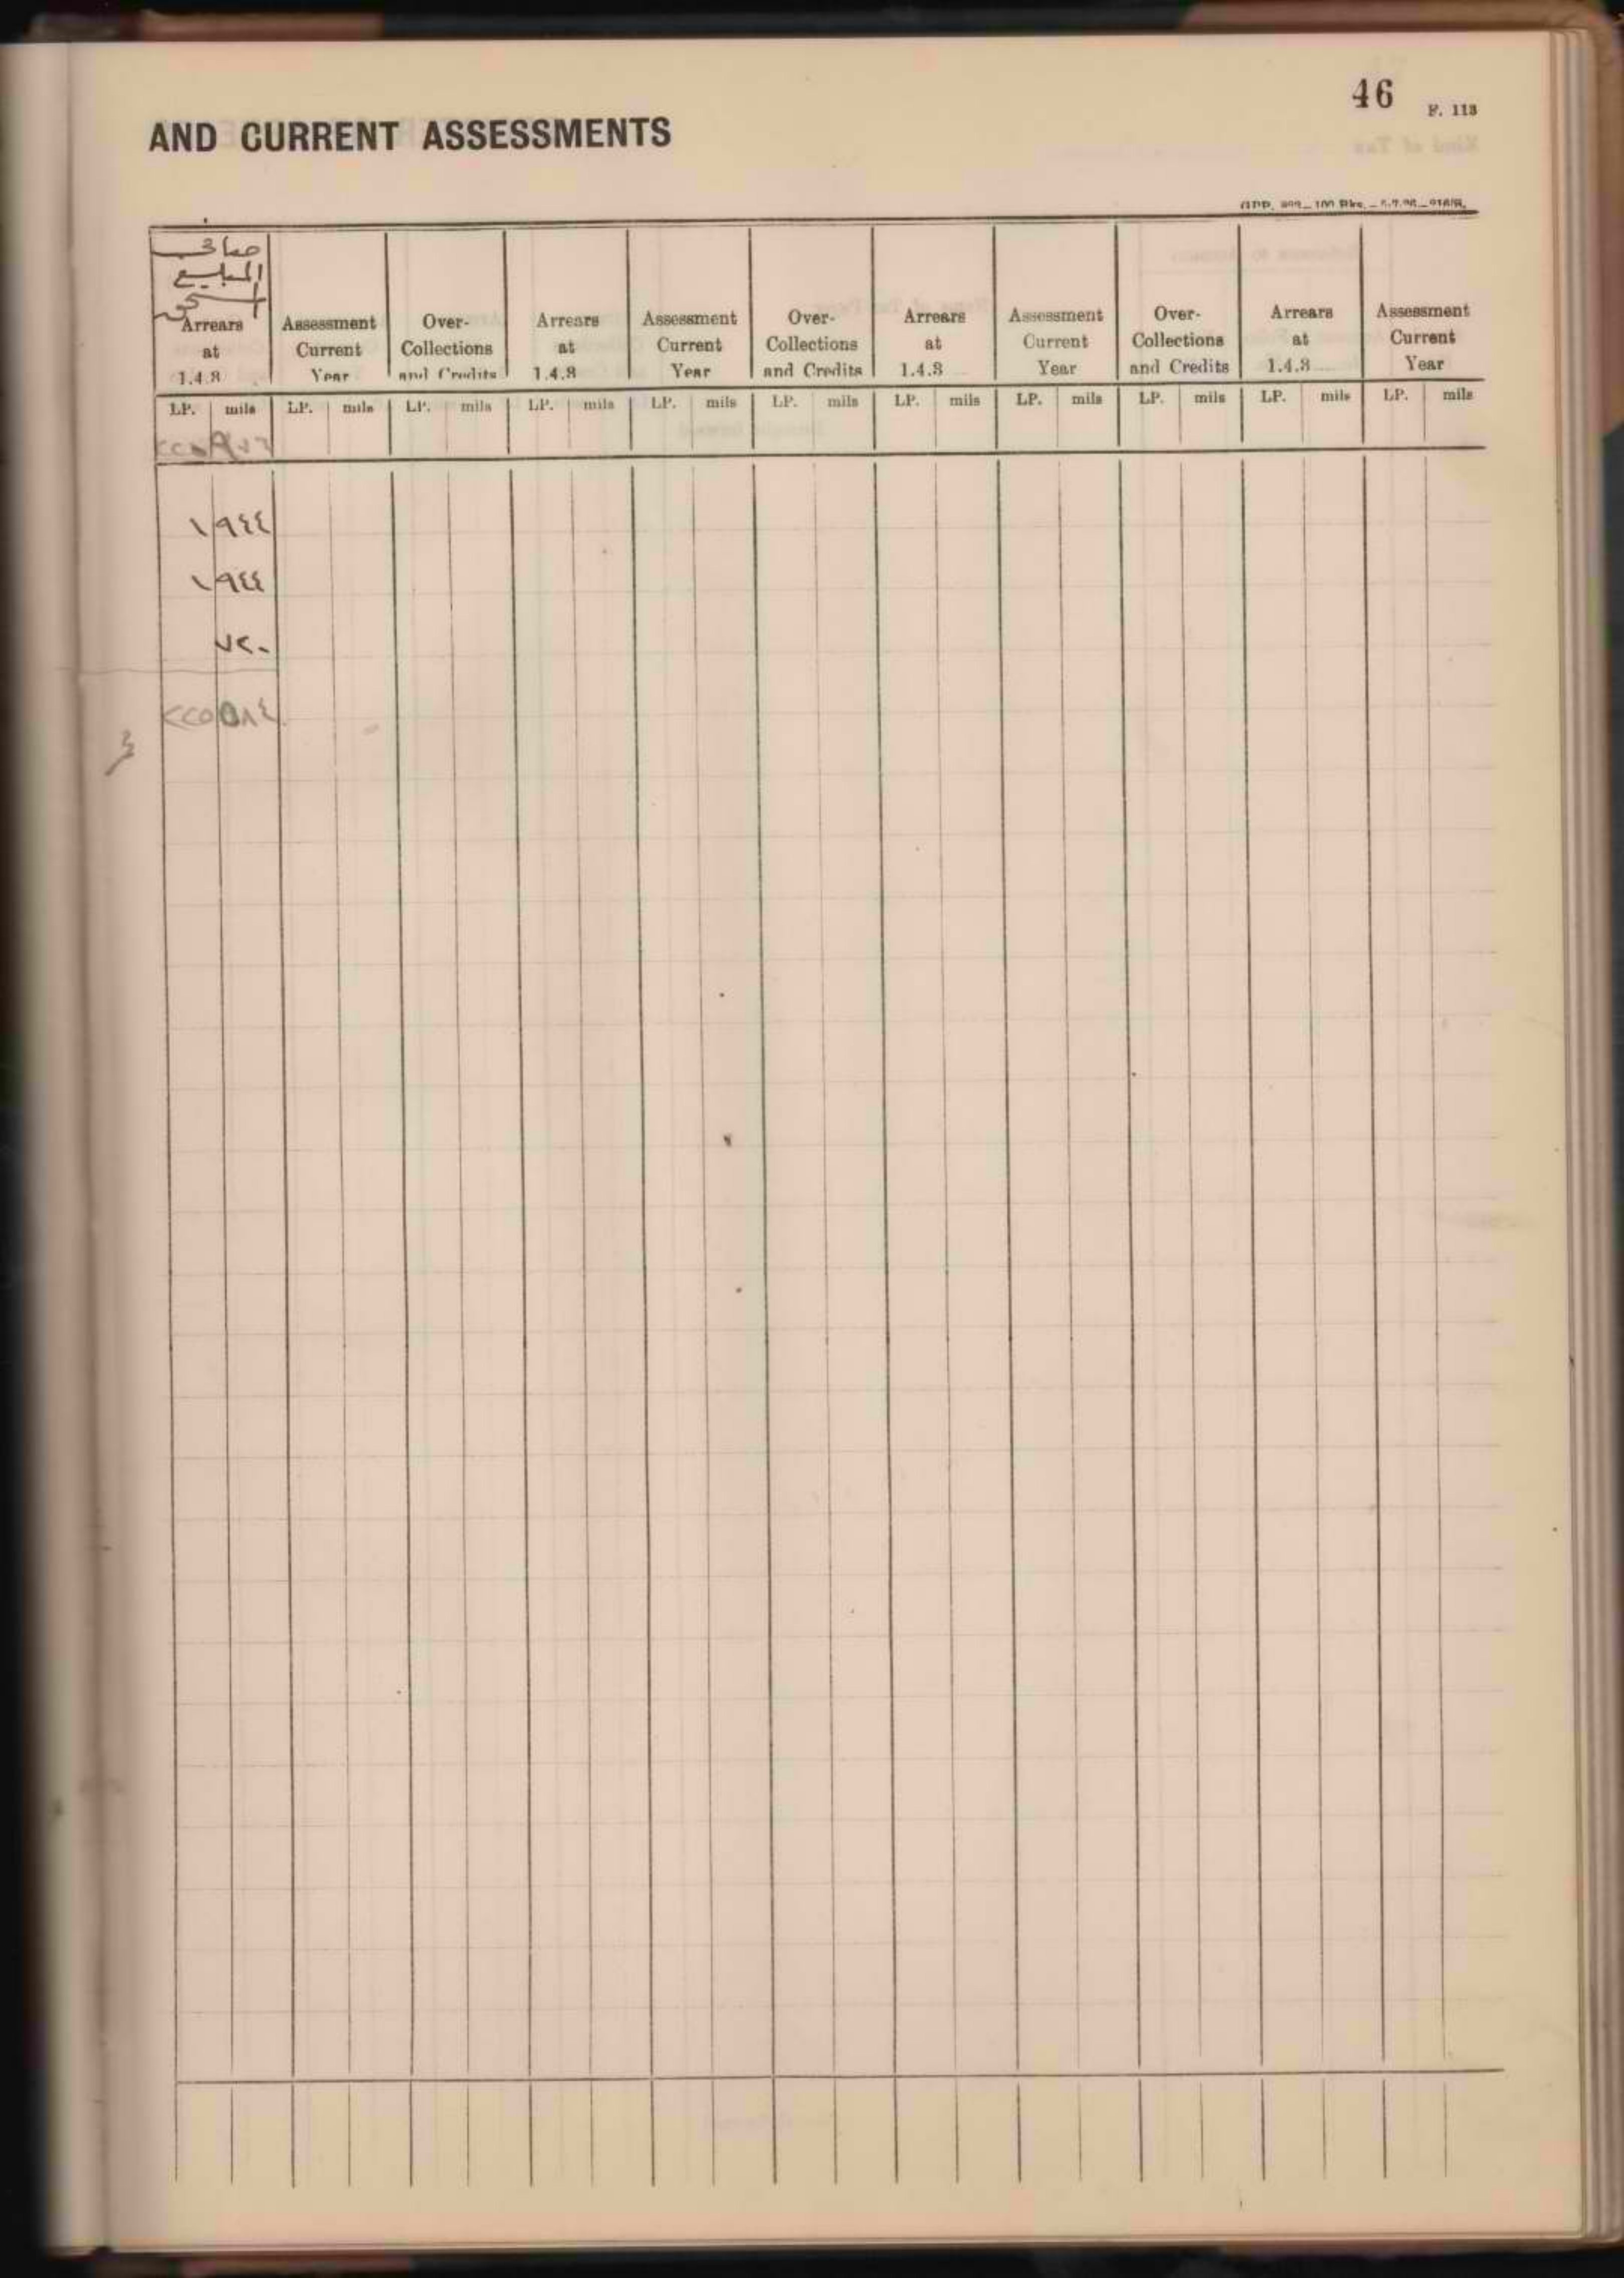 46
F. 113
AND CURRENT ASSESSMENTS
صافي
المبلغ
Arrears at 1.4.3 Assessment Current Year Over-Collections and Credits Arrears at 1.4.3 Assessment Current Year Over-Collections and Credits Arrears at 1.4.3 Assessment Current Year Over-Collections and Credits Arrears at 1.4.3 Assessment Current Year
LP. mils LP. mils LP. mils LP. mils LP. mils LP. mils LP. mils LP. mils LP. mils LP. mils LP. mils
٢٢٠ ٩٧٦
١ ٩٤٤
١ ٩٤٤
٧٢٠
٢٢٥ ٥٨٤